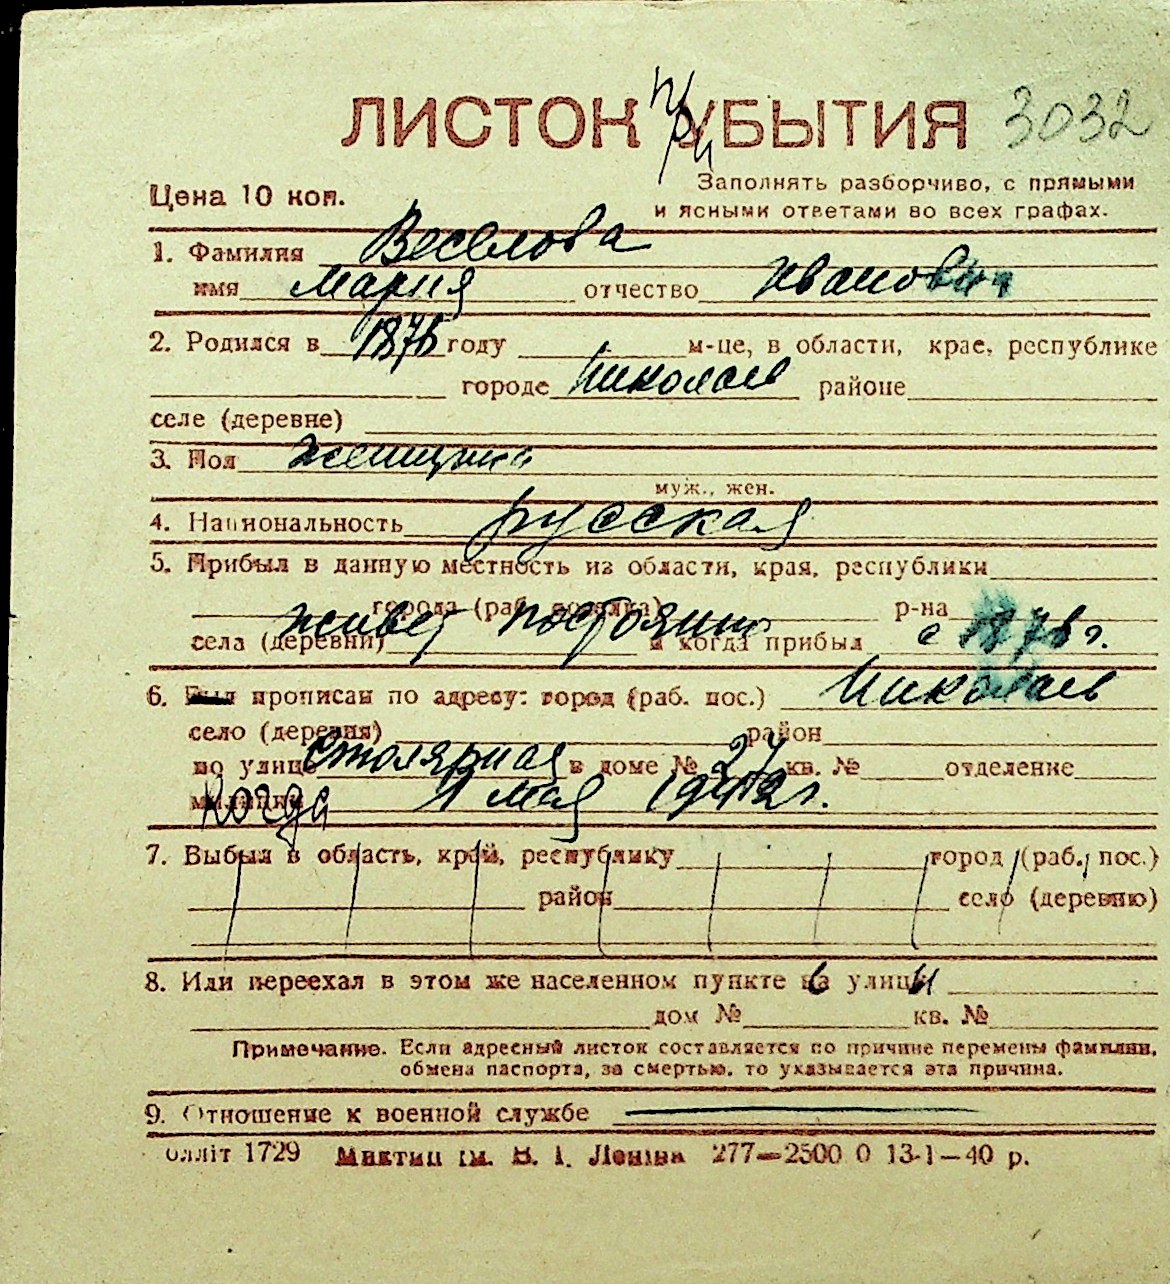 ЛИСТОК при УБЫТИЯ 3032
Заполнять разборчиво, с прямыми
Цена 10 коп.
и ясными ответами во всех графах.
1. Фамилия Веселова
имя Мария отчество Иванович
2. Родился в 1876 году м-це, в области, крае, республике
городе Николаев районе
селе (деревне)
3. Пол женщина
муж., жен.
4. Национальность русская
5. Прибыл в данную местность из области, края, республики
города (раб. поселка) р-на
живет постоянно
села (деревни) и когда прибыл с 1876 г.
6. Был прописан по адресу: город (раб. пос.) Николаев
село (деревня) район
по улице Столярная в доме № 27 кв. № отделение
милиции Когда 1 мая 1942 г.
7. Выбыл в область, край, республику город (раб. пос.)
район село (деревню)
8. Или переехал в этом же населенном пункте на улицу
дом № кв. №
Примечание. Если адресный листок составляется по причине перемены фамилии,
обмена паспорта, за смертью, то указывается эта причина.
9. Отношение к военной службе
олліт 1729 ім. В. І. Леніна 277—2500 0 13-1—40 р.